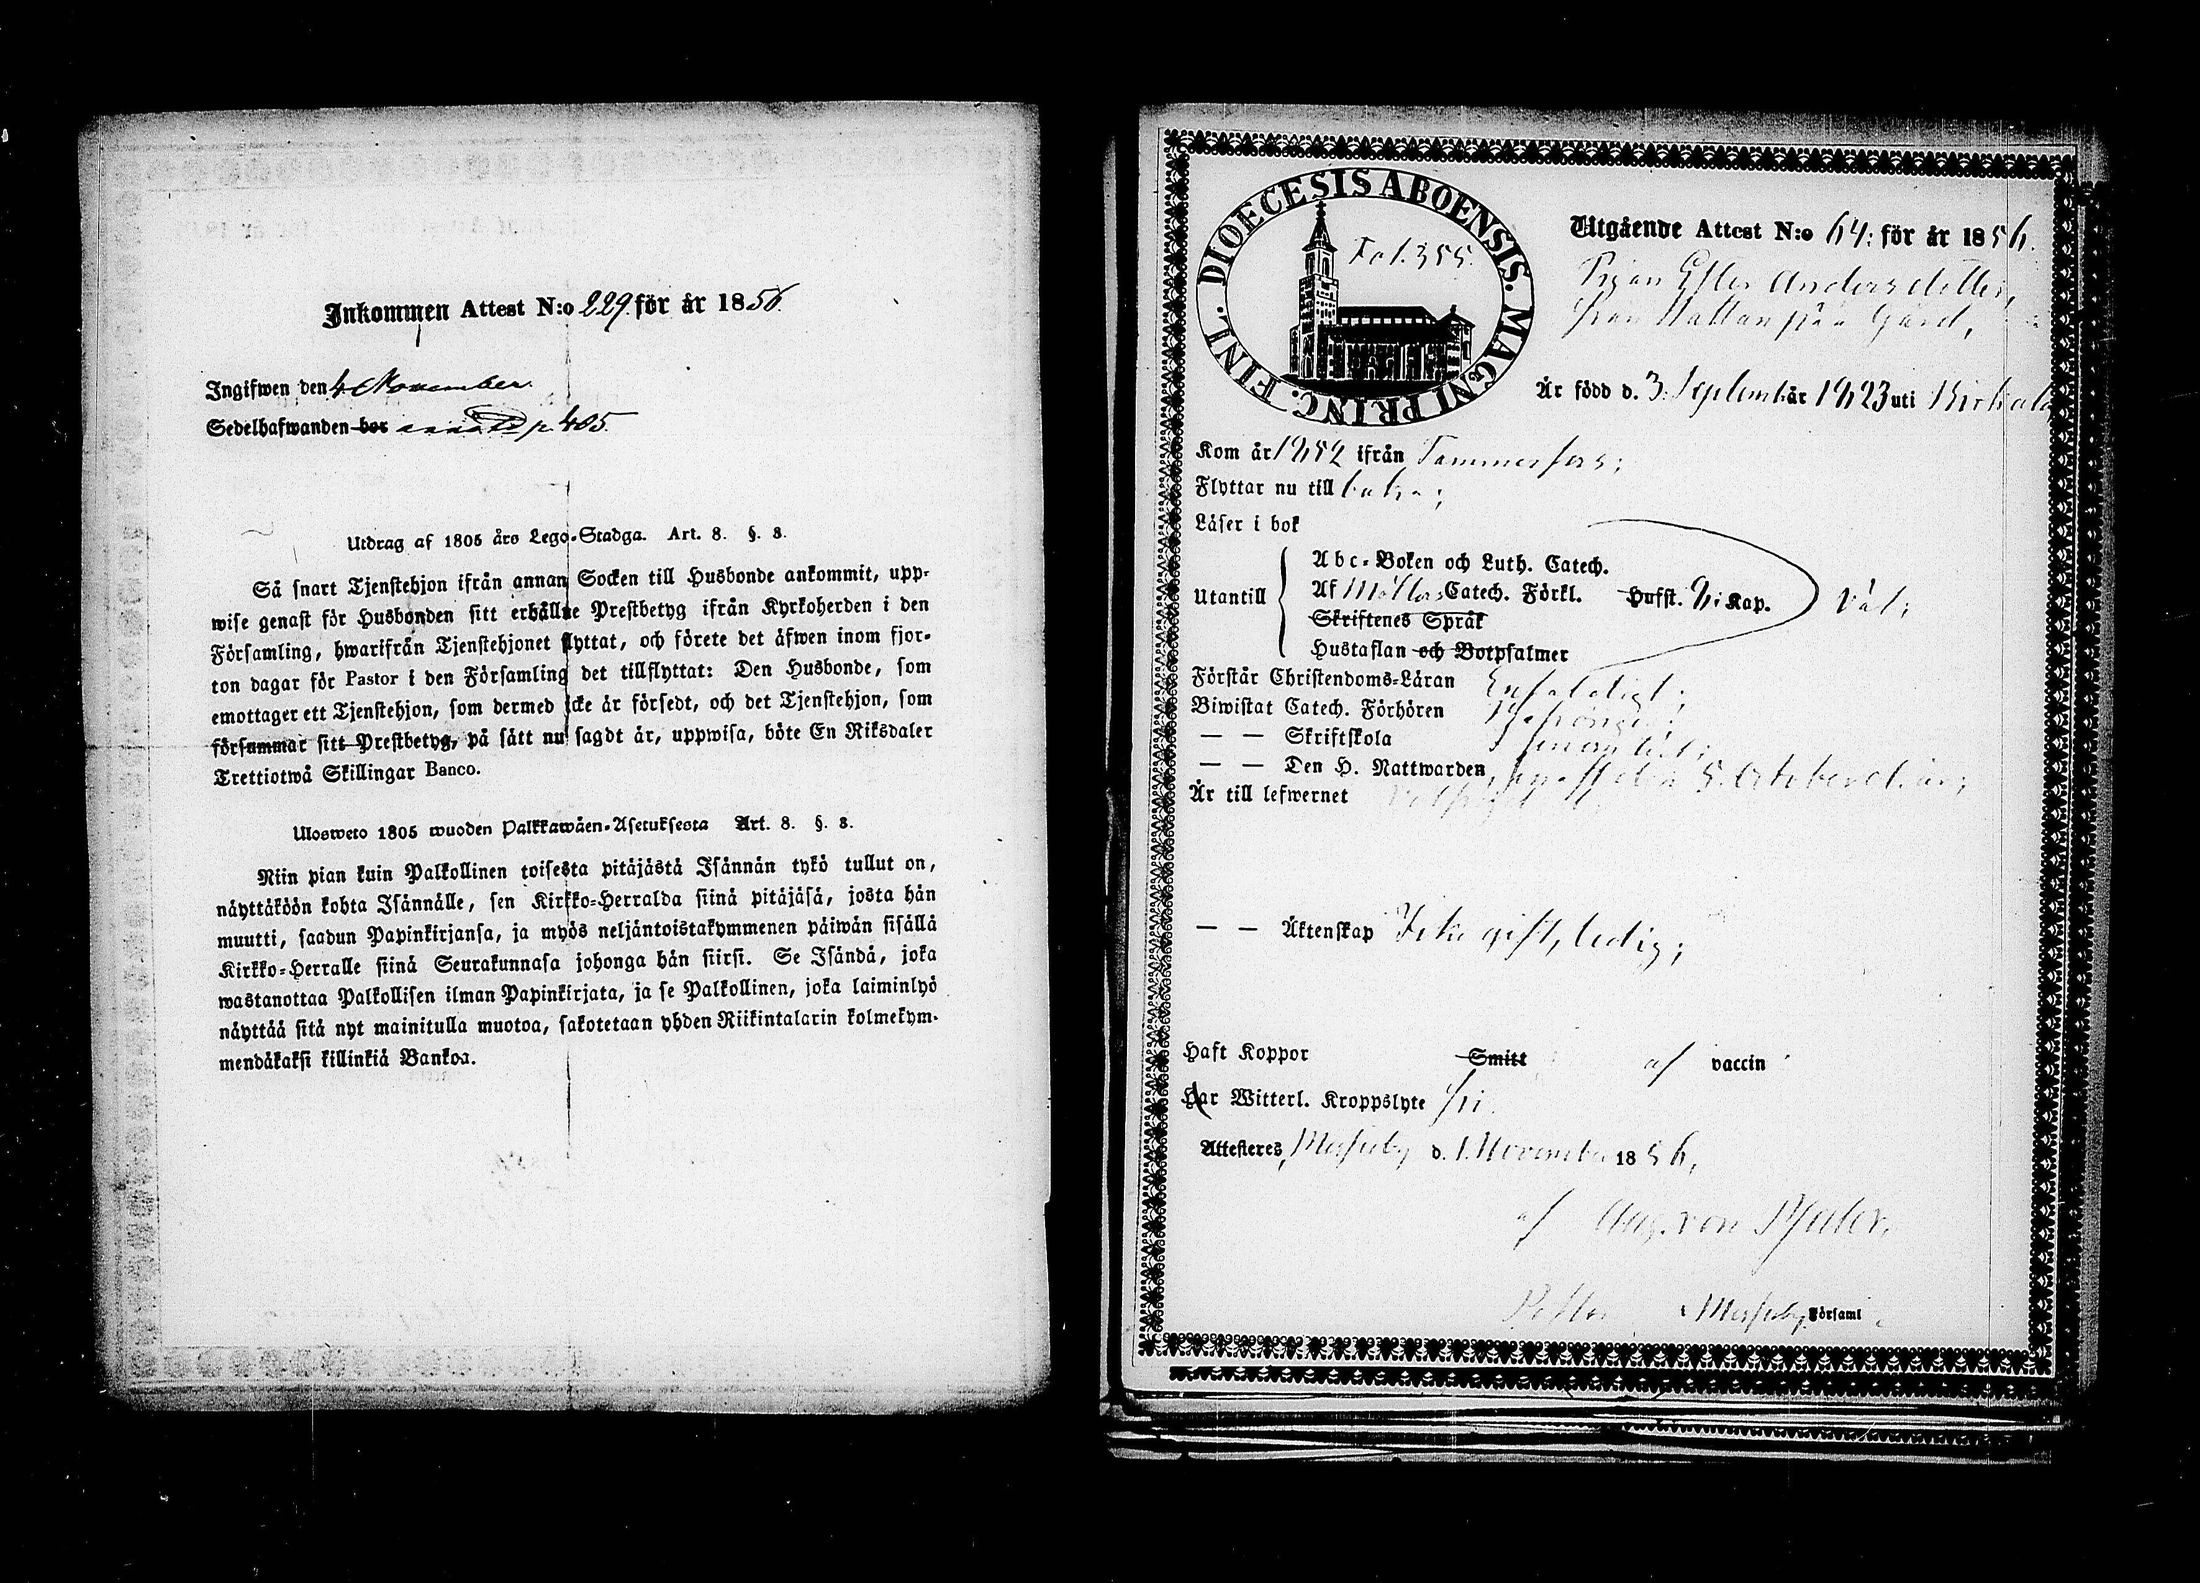 Inkommen Attest N:o 229. för år 1856.
Ingifwen den 4 November
Sedelhafwanden bor p. 405.
Utdrag af 1805 års Lego-Stadga. Art. 8. §. 3.
Så snart Tjenstehjon ifrån annan Socken till Husbonde ankommit, upp-
wise genast för Husbonden sitt erhållne Prestbetyg ifrån Kyrkoherden i den
Församling, hwarifrån Tjenstehjonet flyttat, och förete det äfwen inom fjor-
ton dagar för Pastor i den Församling det tillflyttat: Den Husbonde, som
emottager ett Tjenstehjon, som dermed icke är försedt, och det Tjenstehjon, som
försummar sitt Prestbetyg, på sätt nu sagdt är, uppwisa, böte En Riksdaler
Trettiotwå Skillingar Banco.
Ulosweto 1805 wuoden Palkkawäen-Asetuksesta Art. 8. §. 3.
Niin pian kuin Palkollinen toisesta pitäjästä Isännän tykö tullut on,
näyttäköön kohta Isännälle, sen Kirkko-Herralda siinä pitäjäsä, josta hän
muutti, saadun Papinkirjansa, ja myös neljäntoistakymmenen päiwän sisällä
Kirkko-Herralle siinä Seurakunnasa johonga hän siirsi. Se Isändä, joka
wastanottaa Palkollisen ilman Papinkirjata, ja se Palkollinen, joka laiminlyö
näyttää sitä nyt mainitulla muotoa, sakotetaan yhden Riikintalarin kolmekym-
mendäkaksi killinkiä Bankoa.
DIOECESIS ABOENSIS. MAGNI PRINC. FINL.
Fol. 355.
Utgående Attest N:o 64: för år 1856.
Pigan Ester Andersdotter,
från gård,
Är född d. 3. September år 1823 uti Birkala
Kom år 1852 ifrån Tammerfors;
Flyttar nu till
Läser i bok
Utantill
Abc-Boken och Luth. Catech.
Af Möllers Catech. Förkl. Hufst. Kap.
Skriftenes Språk
Hustaflan och Botpsalmer
Väl;
Förstår Christendoms-Läran Enfaldigt;
Biwistat Catech. Förhören
— — Skriftskola
— — Den H. Nattwarden, sist den 5. October d. år;
Är till lefwernet
— — Äktenskap Icke gift, ledig;
Haft Koppor Smitt af vaccin
Har Witterl. Kroppslyte fri.
Attesteres, Messuby d. 1. November 1856,
af Aug. von Pfaler,
i Messuby Församl